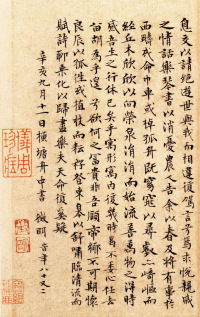 息交以請絕遊世與我而相遺復駕言兮焉求悅親戚
之情話樂琴書以消憂農人告余以春及將有事於
西疇或命巾車或棹孤舟既窈窕以尋壑亦崎嶇而
經丘木欣欣以向榮泉涓涓而始流善萬物之得時
感吾生之行休已矣乎寓形宇內復幾時曷不委心任去
留胡為乎遑遑兮欲何之富貴非吾願帝鄉不可期懷
良辰以孤往或植杖而耘耔登東皋以舒嘯臨清流而
賦詩聊乘化以歸盡樂夫天命復奚疑
辛亥九月十一日橫塘舟中書徵明時年八十又二